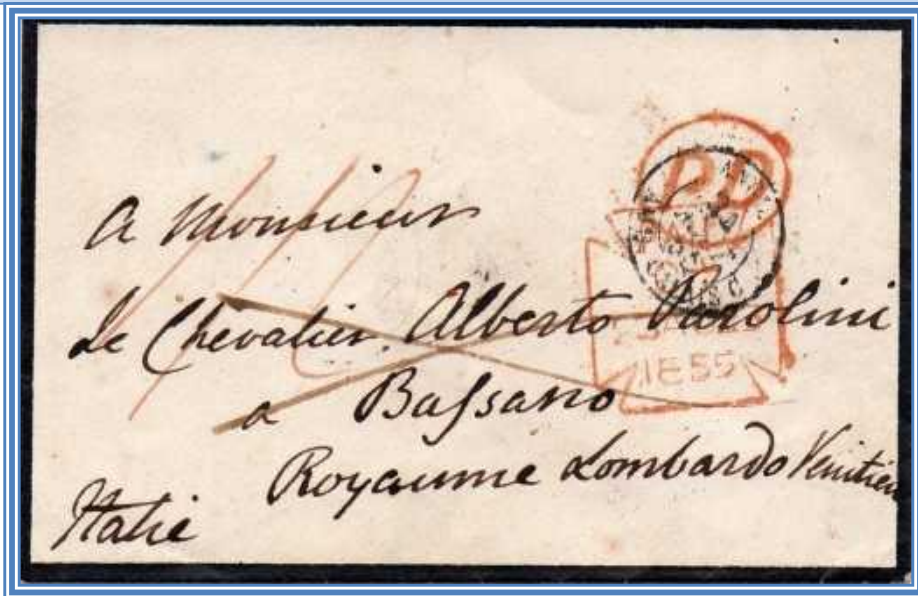 PD
1855
A Monsieur
Le Chevalier Alberto Parolini
a Bassano
Royaume Lombardo Venitien
Italie